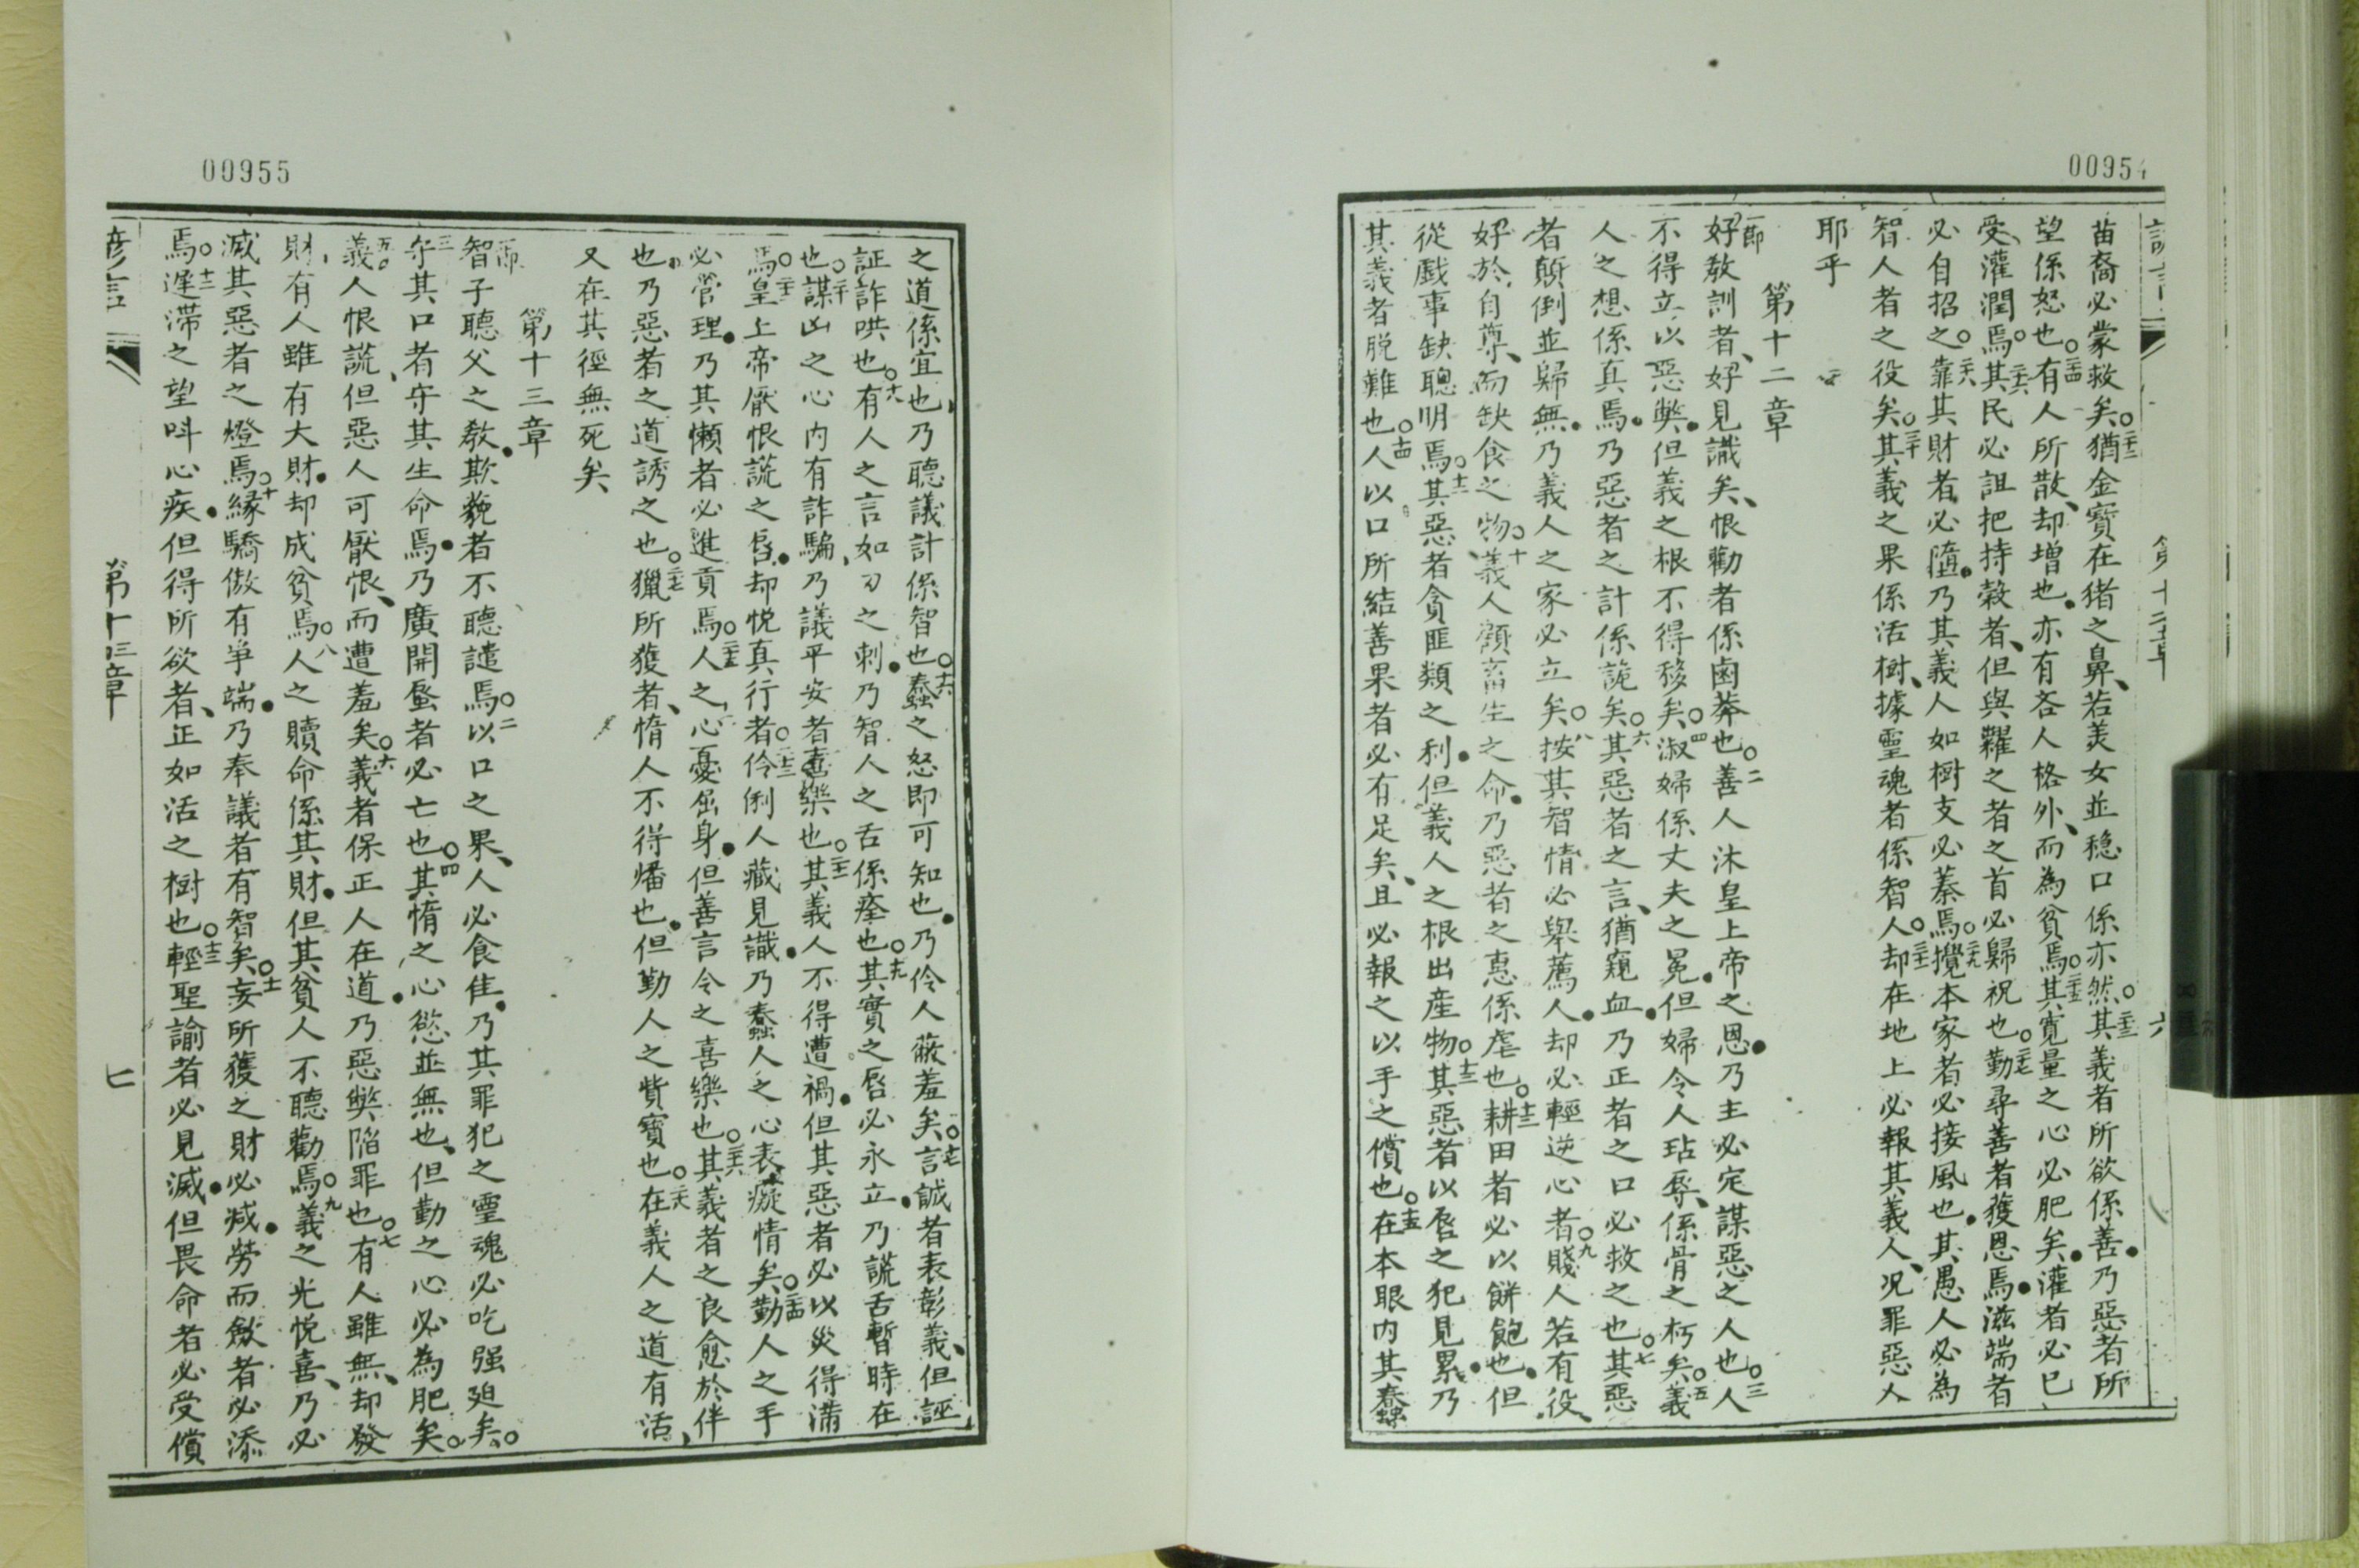 00954
苗裔必蒙救矣○二十二猶金寶在猪之鼻、若美女並穏口係亦然○二十三其義者所欲係善●乃惡者所
望係怒也○二十四有人所散、却增也●亦有吝人格外、而為貧焉○二十五其寬量之心必肥矣●灌者必已
受灌潤焉○二十六其民必詛把持穀者、但與糶之者之首必歸祝也○二十七勤尋善者獲恩焉●滋端者
必自招之○二十八靠其財者必隨●乃其義人如樹支必蓁焉○二十九攪本家者必接風也●其愚人必為
智人者之役矣○三十其義之果係活樹、據靈魂者係智人○三十一却在地上必報其義人、况罪惡人
耶乎
第十二章
一節好敎訓者、好見識矣、恨勸者係鹵莽也○二善人沐皇上帝之恩●乃主必定謀惡之人也○三人
不得立以惡弊●但義之根不得移矣○四淑婦係丈夫之冕●但婦令人玷辱、係骨之朽矣○五義
人之想係真焉●乃惡者之計係詭矣○六其惡者之言、猶窺血●乃正者之口必救之也○七其惡
者顛倒並歸無●乃義人之家必立矣○八按其智情必舉薦人●却必輕逆心者○九賤人若有役、
好於自尊、而缺食之物○十義人顧畜生之命●乃惡者之惠係虐也○十一耕田者必以餅飽也●但
從戲事缺聰明焉○十二其惡者貪匪類之利●但義人之根出産物○十三其惡者以唇之犯見累●乃
其義者脱難也○十四人以口所結善果者必有足矣、且必報之以手之償也○十五在本眼内其蠢
第十二章
六
00955
之道係宜也、乃聽議計係智也○十六蠢之怒即可知也●乃伶人蔽羞矣○十七言誠者表彰義、但誣
証詐哄也○十八有人之言如刀之刺●乃智人之舌係痊也○十九其實之唇必永立●乃謊舌暫時在
也○二十謀凶之心内有詐騙、乃議平安者喜樂也○二十一其義人不得遭禍●但其惡者必以災得滿
焉○二十二皇上帝厭恨謊之唇●却悦真行者○二十三伶俐人藏見識●乃蠢人之心表癡情矣○二十四勤人之手
必管理●乃其懶者必進貢焉○二十五人之心憂屈身●但善言令之喜樂也○二十六其義者之良愈於伴
也●乃惡者之道誘之也○二十七獵所獲者、惰人不得燔也●但勤人之貲寳也○二十八在義人之道有活、
又在其徑無死矣
第十三章
一節智子聽父之敎●欺藐者不聽譴焉○二以口之果、人必食佳●乃其罪犯之靈魂必吃强廹矣○
三守其口者守其生命焉●乃廣開唇者必亡也○四其惰之心慾並無也、但勤之心必為肥矣○
五義人恨謊、但惡人可厭恨、而遭羞矣○六義者保正人在道●乃惡弊陷罪也○七有人雖無、却發
財、有人雖有大財●却成貧焉○八人之贖命係其財●但其貧人不聽勸焉○九義之光悦喜、乃必
滅其惡者之燈焉○十緣驕傲有爭端●乃奉議者有智矣○十一妄所獲之財必减●勞而斂者必添
焉○十二遲滯之望呌心疾●但得所欲者、正如活之樹也○十三輕聖諭者必見滅●但畏命者必受償
諺言
第十三章
七